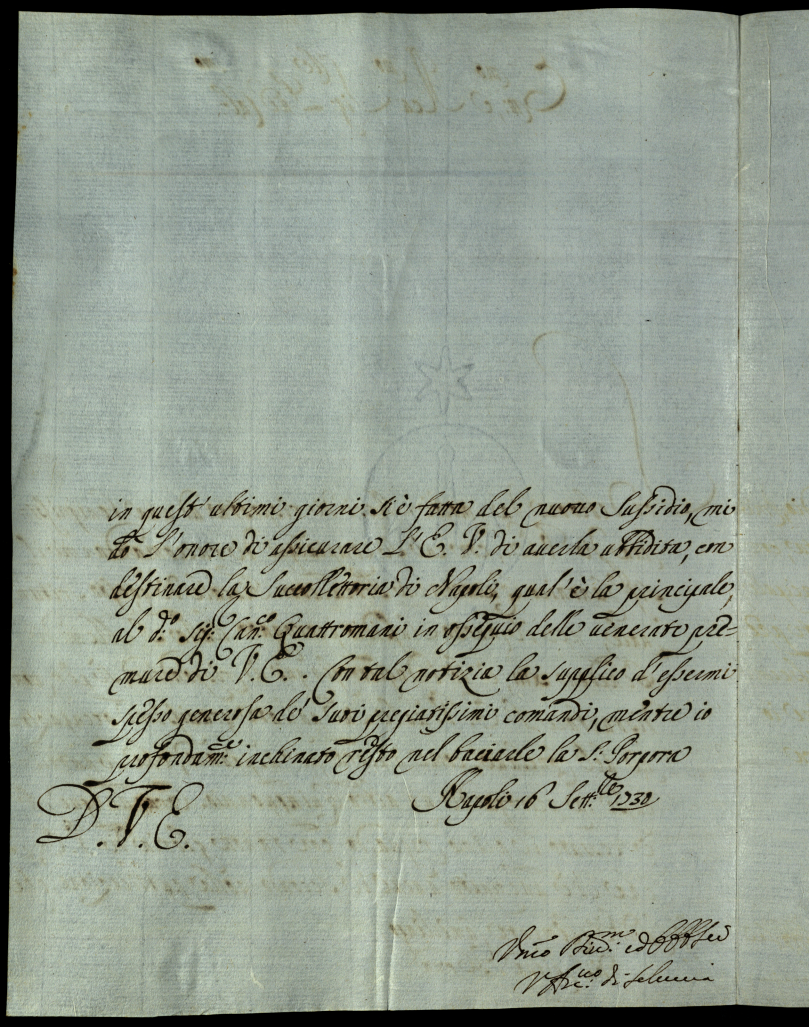 in quest' ultimi giorni si è fatta del nuovo Sussidio, mi
do l'onore di assicurare L'E. V. di averla ubbidita, con
destinare la Succollettoria di Napoli, qual' è la principale,
al d.º Sig.e Can.co Quattromani in ossequio delle venerate pre-
mure di V. E. . Con tal notizia la supplico d'essermi
spesso generosa de' suoi pregiatissimi comandi, mentre io
profondam.te inchinato resto nel baciarle la S. Porpora
Napoli 16 Sett.bre 1730
D. V. E.
di Seleucia